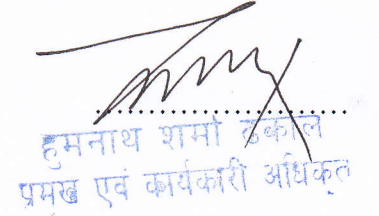 हुमनाथ शर्मा ढकाल
प्रमुख एवं कार्यकारी अधिकृत